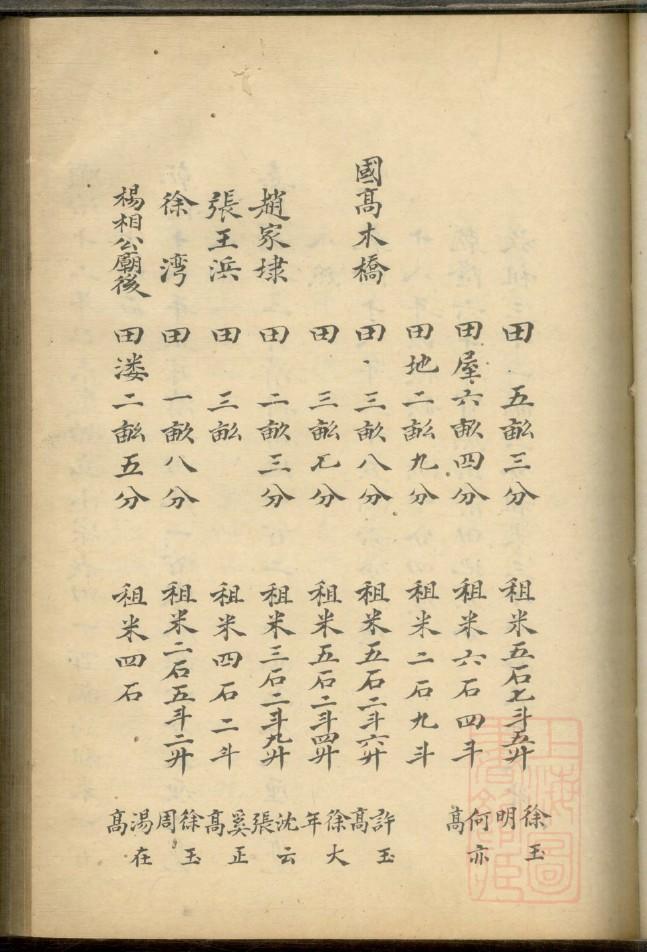 田　五畝三分　租米五石七斗五升　徐玉明
田屋六畝四分　租米六石四斗　何亦高
田地二畝九分　租米二石九斗
國高木橋　田　三畝八分　租米五石二斗六升　許玉高
田　三畝七分　租米五石二斗四升　徐大年
趙家埭　田　二畝三分　租米三石二斗九升　沈云張
張王浜　田　三畝　租米四石二斗　奚正高
徐湾　田　一畝八分　租米二石五斗二升　徐玉周
楊相公廟後　田溇二畝五分　租米四石　湯在高
上海圖書館藏